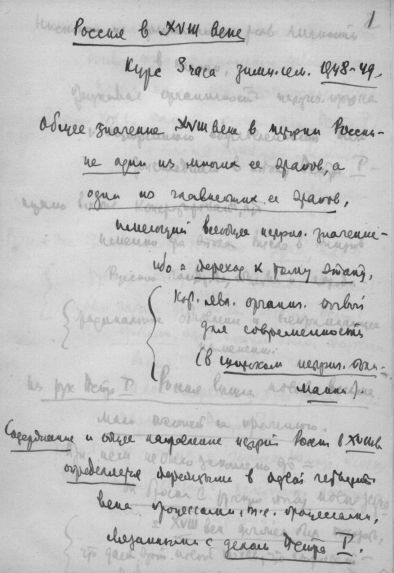 1
Россия в XVIII веке
Курс 3 часа, зимн. сем. 1948-49.
Общее значение XVIII века в истории России -
не один из многих ее эрапов, а
один из главнейших ее эрапов,
имеющий всеобщее истор. значение -
ибо - переход к тому этапу,
кот. явл. органич. основой
для современности
(в широком истори. пони-
мании).
Содержание и общее направление истории России в XVIII в
определяется первыми в первой четверти
века процессами, т.е. процессами,
связанными с делом Петра I.